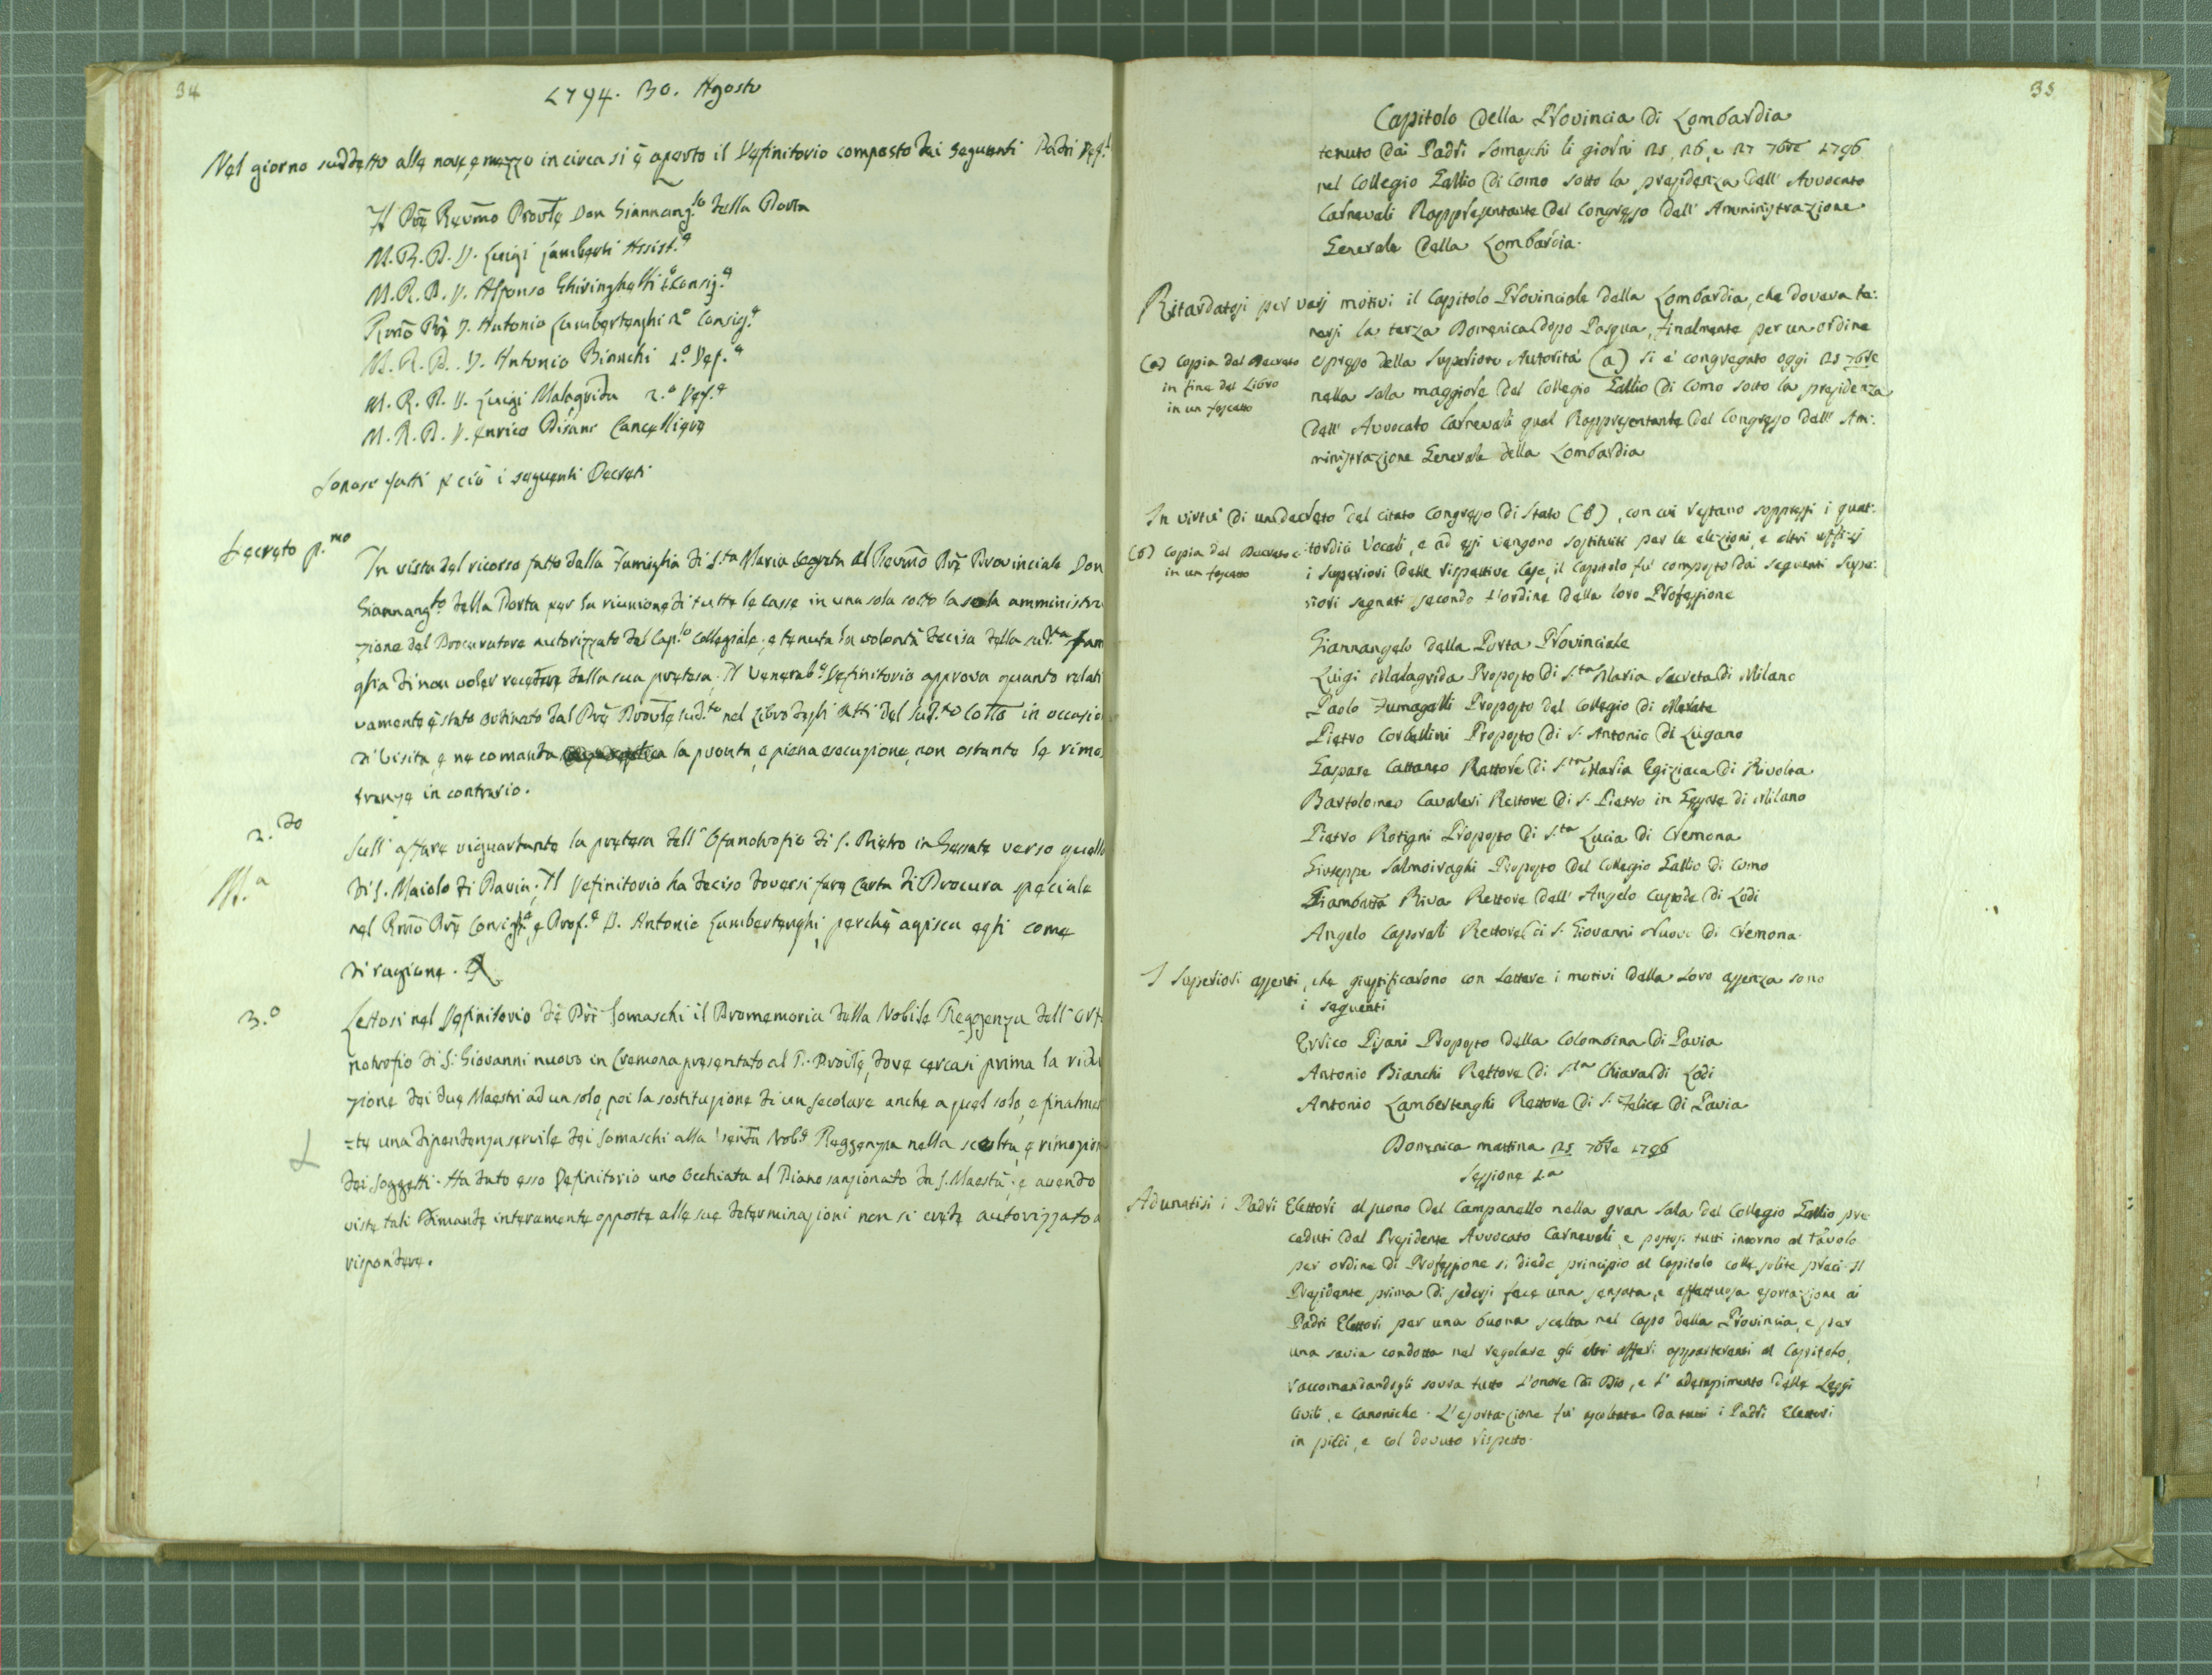 34
1794. 30. Agosto
Nel giorno suddetto alle nove, e mezzo in circa si è aperto il Definitorio composto dai seguenti Padri Def.i
Il Prē Rev̄mo Prov̄le Don Giannang.lo della Porta
M. R. P. D. Luigi Lamberti Assist.e
M. R. P. D. Alfonso Ghiringhelli 1.o Consig.e
Rm̄o Prē D. Antonio Lambertenghi 2.o Consig.e
M. R. P. D. Antonio Bianchi 1.o Def.e
M. R. P. D. Luigi Malagrida 2.o Def.e
M. R. P. D. Enrico Pisani Cancelliere
Sonosi fatti p ciò i seguenti Decreti
Decreto p.mo
In vista del ricorso fatto dalla Famiglia di S.ta Maria Segreta al Rev̄mo Prē Provinciale Don
Giannang.lo della Porta per la riunione di tutte le casse in una sola sotto la sola amministra
zione del Procuratore autorizzato dal Cap.lo Collegiale; e tenuta la volontà decisa della sud.ta Fam
glia di non voler recedere dalla sua pretesa; Il Venerab.e Definitorio approva quanto relati
vamente è stato ordinato dal Prē Prov̄le sud.to nel Libro degli Atti del sud.to Coll̄o in occasio
di Visita, e ne comanda la pronta, e piena esecuzione, non ostante le rimo
stranze in contrario.
2.do
M.a
Sull' affare riguardante la pretesa dell' Orfanotrofio di S. Pietro in Gessate verso quello
di S. Maiolo di Pavia; Il Definitorio ha deciso doversi fare Carta di Procura speciale
nel Rm̄o Prē Consig.e, e Prof.e D. Antonio Lambertenghi, perchè agisca egli come
di ragione.
3.o
Lettosi nel Definitorio de' Pri Somaschi il Promemoria della Nobile Reggenza dell' Orf
notrofio di S. Giovanni nuovo in Cremona presentato al P. Prov̄le, dove cercasi prima la ridu
zione dei due Maestri ad un solo, poi la sostituzione di un secolare anche a quel solo, e finalmen
=te una dipendenza servile dei Somaschi alla Nob.e Reggenza nella scelta, e rimozion
dei Soggetti. Ha dato esso Definitorio uno occhiata al Piano sanzionato da S. Maestà; e avendo
viste tali dimande interamente opposte alle sue determinazioni non si crede autorizzato a
rispondere.
35
Capitolo della Provincia di Lombardia
tenuto dai Padri Somaschi li giorni 25, 26, e 27 7bre 1796
nel Collegio Gallio di Como sotto la presidenza dell' Avvocato
Carnevali Rappresentante del Congresso dell' Amministrazione
Generale della Lombardia.
Ritardatosi per varj motivi il Capitolo Provinciale della Lombardia, che doveva te:
nersi la terza Domenica dopo Pasqua, finalmente per un ordine
(a) Copia del Decreto
in fine del Libro
in un foglietto
espresso della Superiore Autorità (a) si è congregato oggi 25 7bre
nella sala maggiore del Collegio Gallio di Como sotto la presidenza
dell' Avvocato Carnevali qual Rappresentante del Congresso dell' Am:
ministrazione Generale della Lombardia
In virtù di un decreto del citato Congresso di Stato (b), con cui restano soppressi i quat:
(b) Copia del Decreto e
in un foglietto
tordici Vocali, e ad essi vengono sostituiti per le elezioni, e altri uffizj
i Superiori delle rispettive Case, il Capitolo fu composto dai seguenti Supe:
riori segnati secondo l'ordine della loro Professione
Giannangelo della Porta Provinciale
Luigi Malagrida Proposto di S.ta Maria Secreta di Milano
Paolo Fumagalli Proposto del Collegio di Merate
Pietro Corbellini Proposto di S. Antonio di Lugano
Gaspare Cattaneo Rettore di S.ta Maria Egiziaca di Rivolta
Bartolomeo Cavaleri Rettore di S. Pietro in Gessate di Milano
Pietro Rotigni Proposto di S.ta Lucia di Cremona
Giuseppe Salmoiraghi Proposto del Collegio Gallio di Como
Giambatta Riva Rettore dell' Angelo Custode di Lodi
Angelo Caporali Rettore di S. Giovanni Nuovo di Cremona.
I Superiori assenti, che giustificarono con Lettere i motivi della loro assenza sono
i seguenti
Errico Pisani Proposto della Colombina di Pavia
Antonio Bianchi Rettore di S.ta Chiara di Lodi
Antonio Lambertenghi Rettore di S. Felice di Pavia
Domenica mattina 25 7bre 1796
Sessione 1.a
Adunatisi i Padri Elettori al suono del Campanello nella gran Sala del Collegio Gallio pre
ceduti dal Presidente Avvocato Carnevali, e postosi tutti intorno al tavolo
per ordine di Professione si diede principio al Capitolo colle solite preci. Il
Presidente prima di sedersi fece una sensata, e affettuosa esortazione ai
Padri Elettori per una buona scelta nel Capo della Provincia, e per
una savia condotta nel regolare gli altri affari appartenenti al Capitolo,
raccomandandogli sovra tutto l'onore di Dio, e l' adempimento delle Leggi
Civili, e Canoniche. L' esortazione fu ascoltata da tutti i Padri Elettori
in piedi, e col dovuto rispetto.